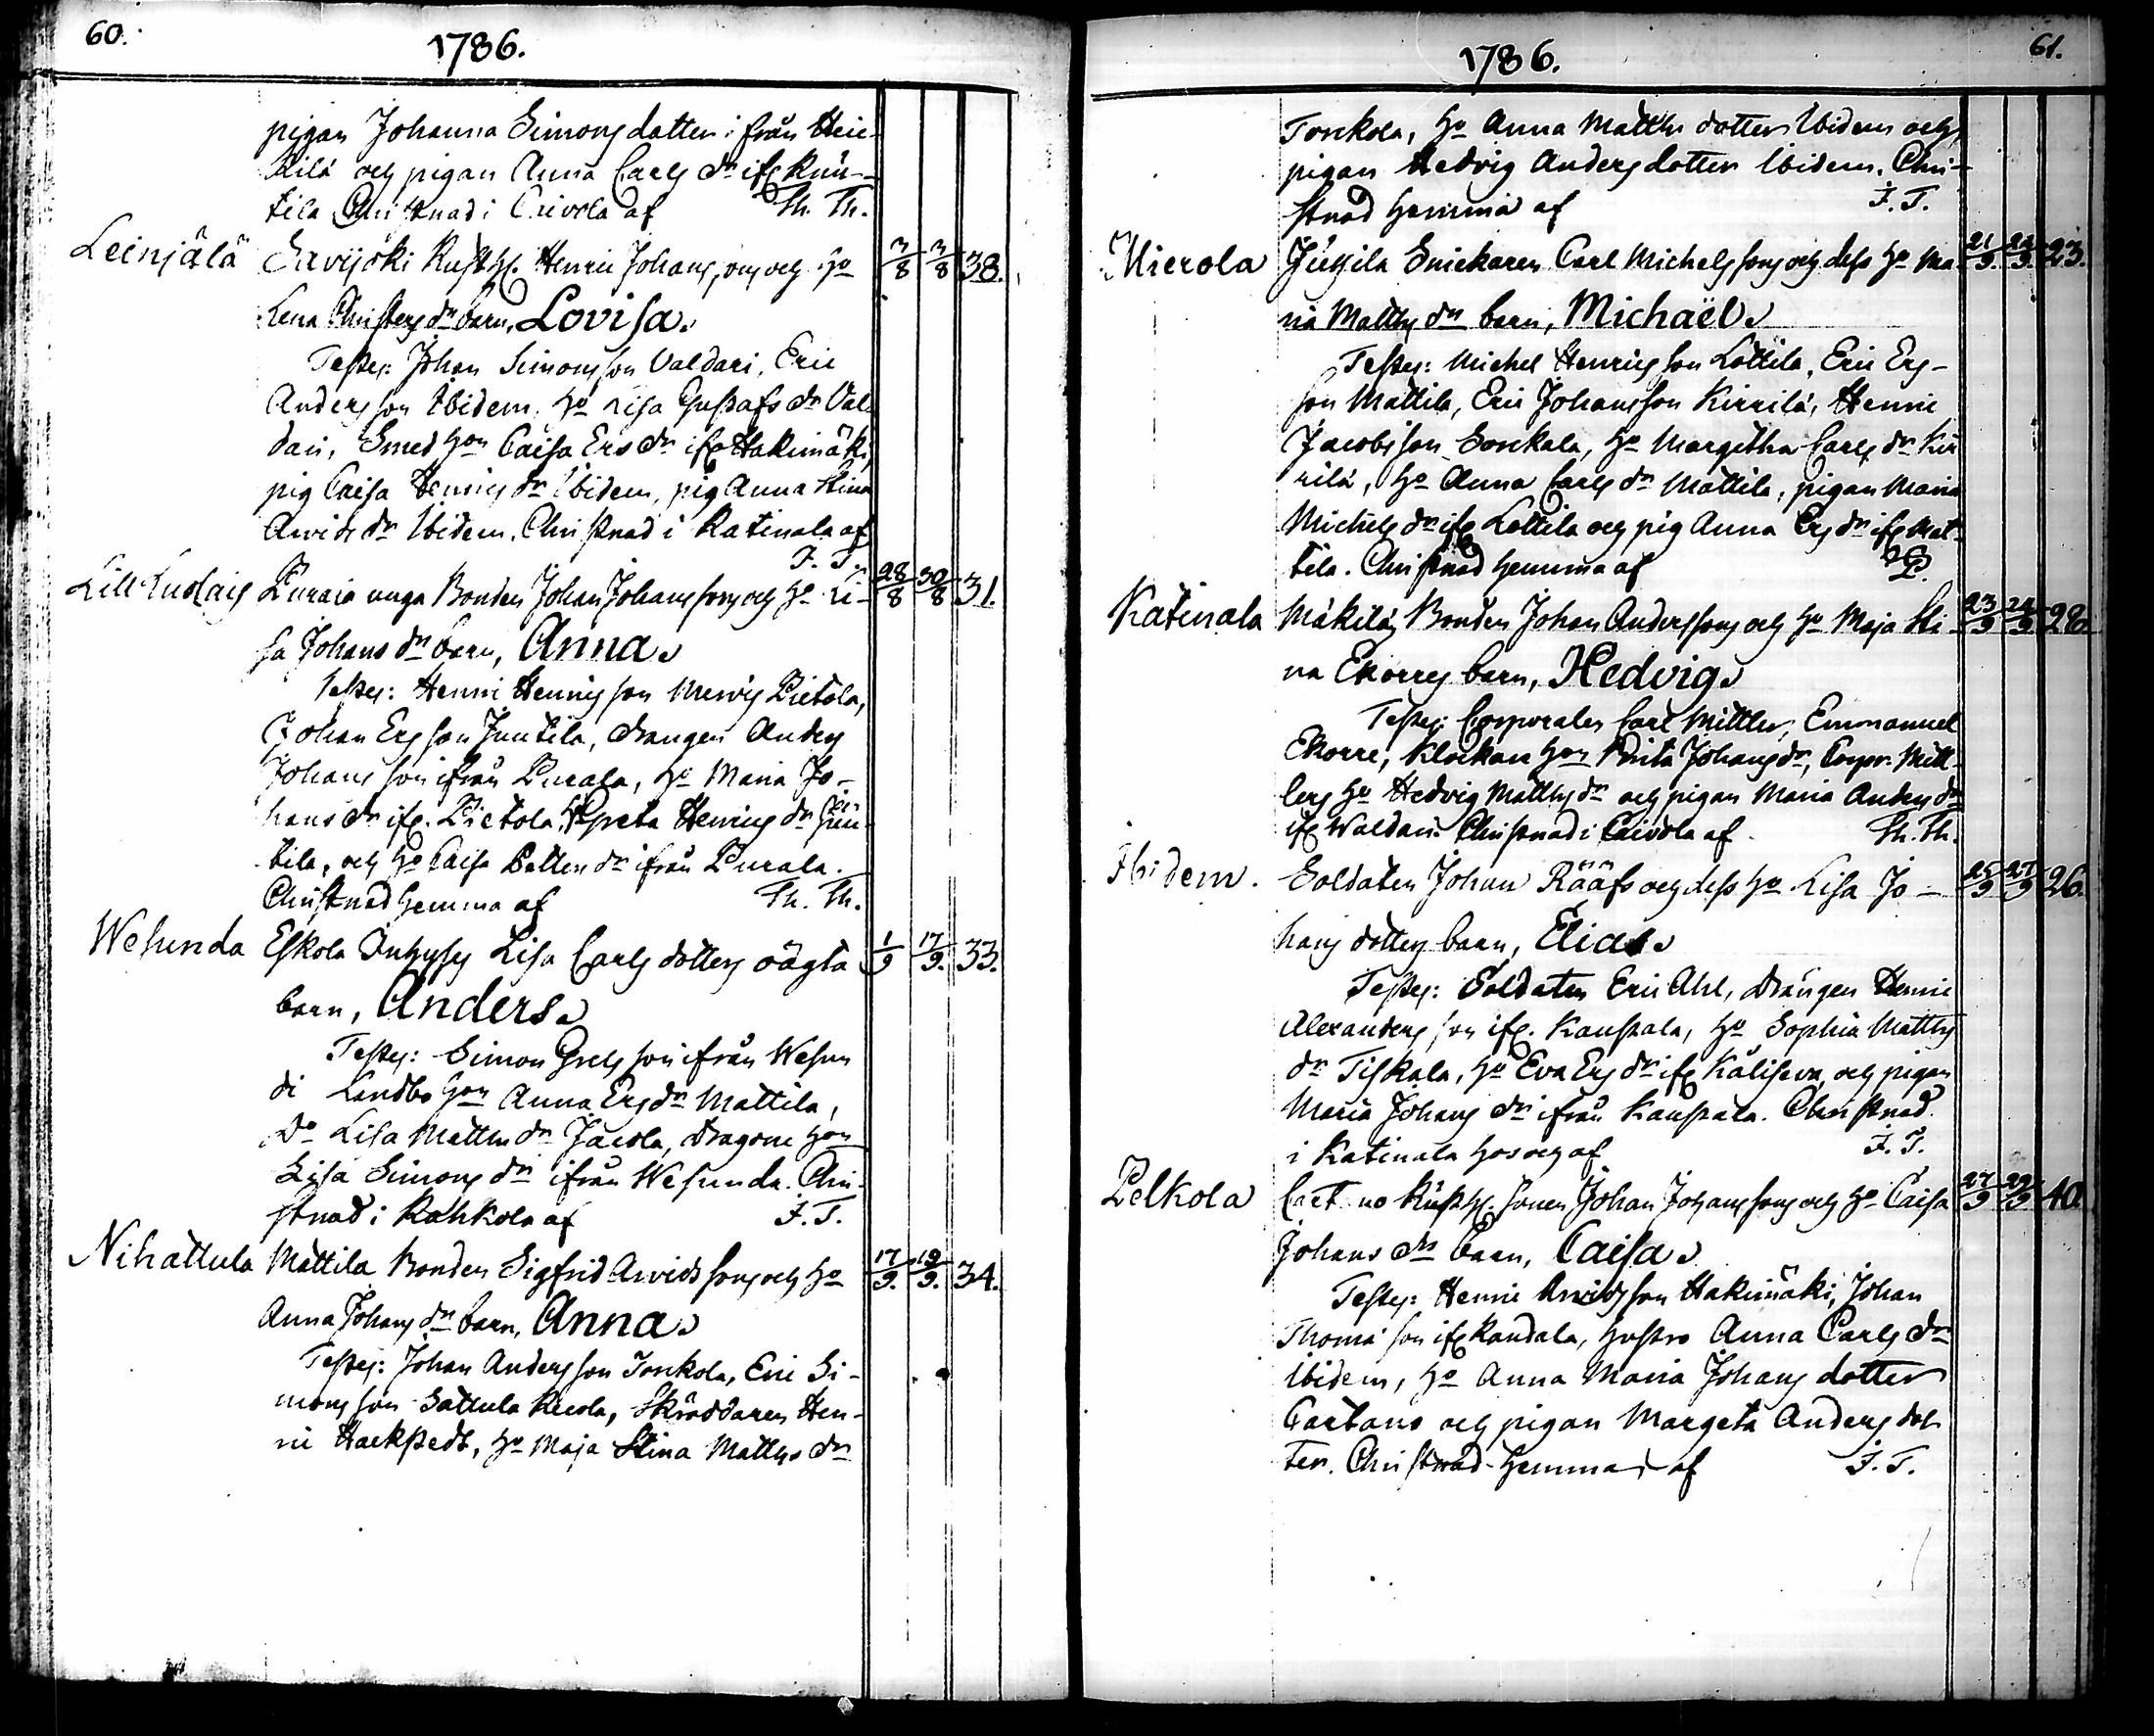 60.
1786.
pigan Johanna Simons dotter i från Hei-
kilä och pigan Anna Carls dr ifr Knu-
tila Christnad i Caivola af Th. Th.
Leinjälä Savijöki Rusth. Henric Johanssons och ho 3/8 3/8 38.
Lena Christers dr barn, Lovisa.
Testes: Johan Simonsson Valdari, Eric
Andersson Ibidem, ho Lisa Gustafs dr Val-
dari, Smed hon Caisa Ers dr ifr Hakimäki,
pig Caisa Henrics dr Ibidem, pig Anna Stina
Arvids dr Ibidem. Christnad i Katinala af
F. T.
Lill Luolais unga Bonden Johan Johanssons och ho Li- 28/8 30/8 31.
sa Johans dr barn, Anna.
Testes: Henric Henricsson Mervis Pietola,
Johan Ersson Juutila, drängen Anders
Johansson ifrån Purala, ho Maria Jo-
hans dr ifr. Pietola, Greta Henrics dr Juu-
tila, och ho Caisa dr ifrån Purala.
Christnad hemma af Th. Th.
Wesunda Eskola Inhyses Lisa Carls dotters oägta 1/9 17/9. 33.
barn, Anders.
Testes: Simon Grelsson ifrån Wesun
di Landbo hon Anna Ers dr Mattila,
Do Lisa Matths dr Jacola, Dragone hon
Lisa Simons dr ifrån Wesunda. Chri-
stnad i Rahkola af F. T.
Nihattula Mattila Bonden Sigfrid Arvidssons och ho 17/9. 19/9. 34.
Anna Johans dr barn, Anna.
Testes: Johan Andersson Torckola, Eric Si-
monsson Sattula Recola, Skräddaren Hen-
ric Hackstedt, ho Maja Stina Matths dr
61.
1786.
Torckola, ho Anna Matths dotter Ibidem och
pigan Hedvig Anders dotter Ibidem. Chri-
stnad hemma af F. T.
Mierola Jussila Snickaren Carl Michelssons och dess ho Ma- 21/9. 24/9. 23.
ria Matths dr barn, Michaël.
Testes: Michel Henricsson Lottila, Eric Ers-
son Mattila, Eric Johansson Kirrilä, Henric
Jacobsson Sorckala, ho Margetha Carls dr Kir
rilä, ho Anna Carls dr Mattila, pigan Maria
Michels dr ifr Lottila och pig Anna Ers dr ifr Mat-
tila. Christnad hemma af
Katinala Mäkiläs Bonden Johan Anderssons och ho Maja Sti- 23/9 24/9 28.
na Ekorres barn, Hedvig.
Testes: Corporalen Carl Mittler, Emmanuel
Ekorre, Klockare hon Brita Johans dr, Corpr. Mitt-
lers ho Hedvig Matths dr och pigan Maria Anders dr
ifr Waldari. Christnad i Caivola af Th. Th.
Ibidem. Soldaten Johan Rääfs och dess ho Lisa Jo- 25/9 27/9 26.
hans dotters barn, Elias.
Testes: Soldaten Eric Ahl, drängen Henric
Alexandersson ifr. Kauppala, ho Sophia Matths
dr Tiskala, ho Eva Ers dr ifr Kaliseva, och pigan
Maria Johans dr ifrån Kauppala. Christnad
i Katinala hos och af F. T.
Pelkola Cart no Rusth. sonen Johan Johanssons och ho Caisa 27/9 29/9 40.
Johans dr barn, Caisa.
Testes: Henric Arvidsson Hakimäki, Johan
Thomasson ifr Kandala, hustro Anna Carls dr
Ibidem, ho Anna Maria Johans dotter
Cartano och pigan Margeta Anders dot-
ter. Christnad hemma af F. T.